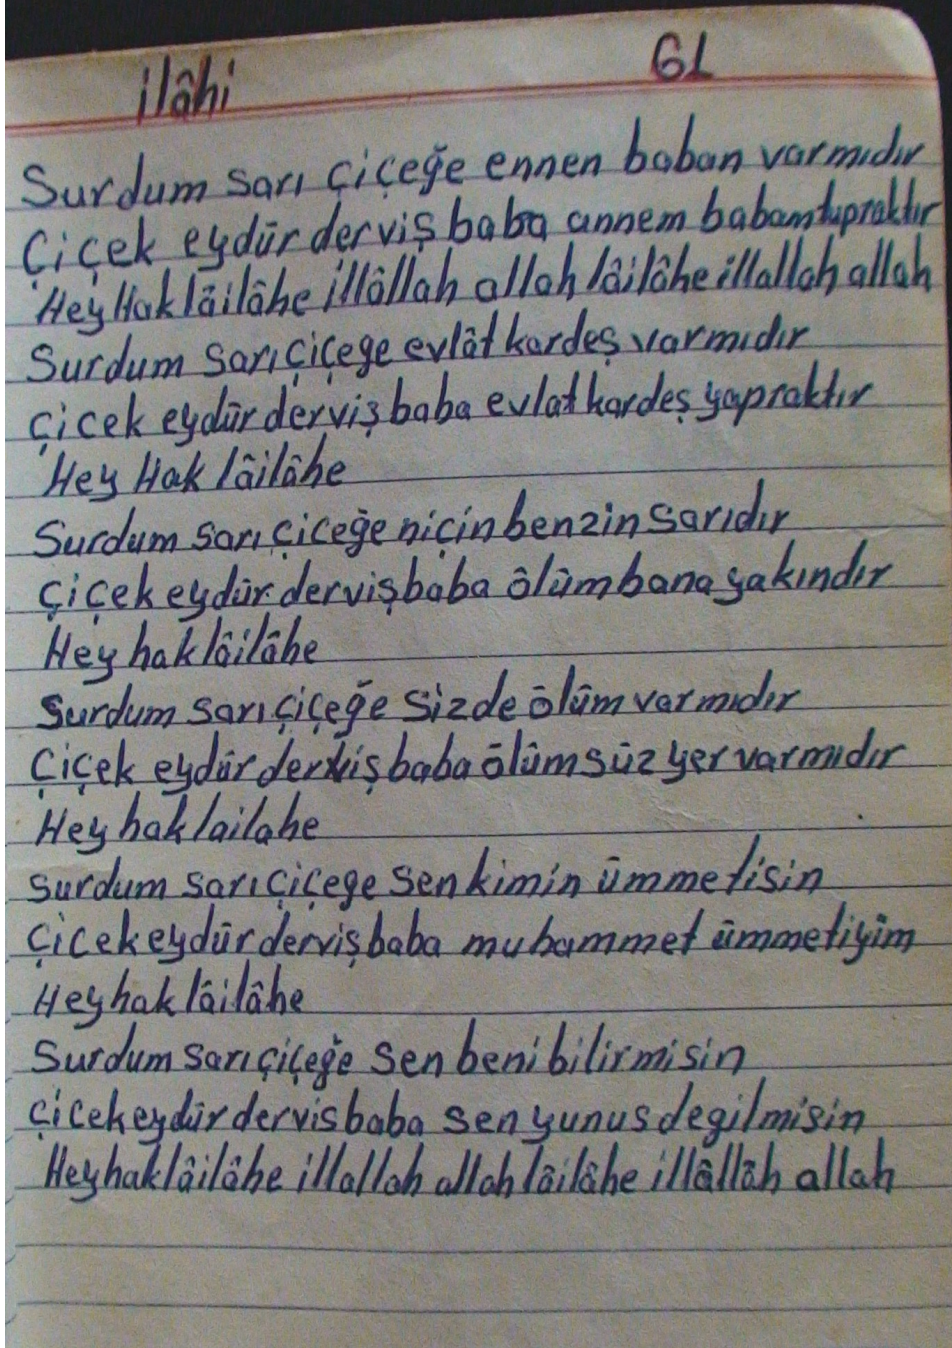 ilâhi 61
Surdum sarı çiçeğe ennen baban varmıdır
Çiçek eydür derviş baba annem babam tupraktır
Hey Hak lâilâhe illâllah allah lâilâhe illallah allah
Surdum sarı çiçege evlât kardeş varmıdır
çicek eydür derviş baba evlat kardeş yapraktır
Hey Hak lâilâhe
Surdum sarı çiceğe niçin benzin sarıdır
çiçek eydür derviş baba ölüm bana yakındır
Hey hak lâilâhe
Surdum sarı çiçeğe sizde ölüm varmıdır
çiçek eydür derviş baba ölümsüz yer varmıdır
Hey hak lailahe
Surdum sarı çiçege sen kimin ümmetisin
çicek eydür derviş baba muhammet ümmetiyim
Hey hak lâilâhe
Surdum sarı çiçeğe sen beni bilirmisin
çicek eydür dervis baba sen yunus degilmisin
Hey hak lâilâhe illallah allah lâilâhe illâllâh allah